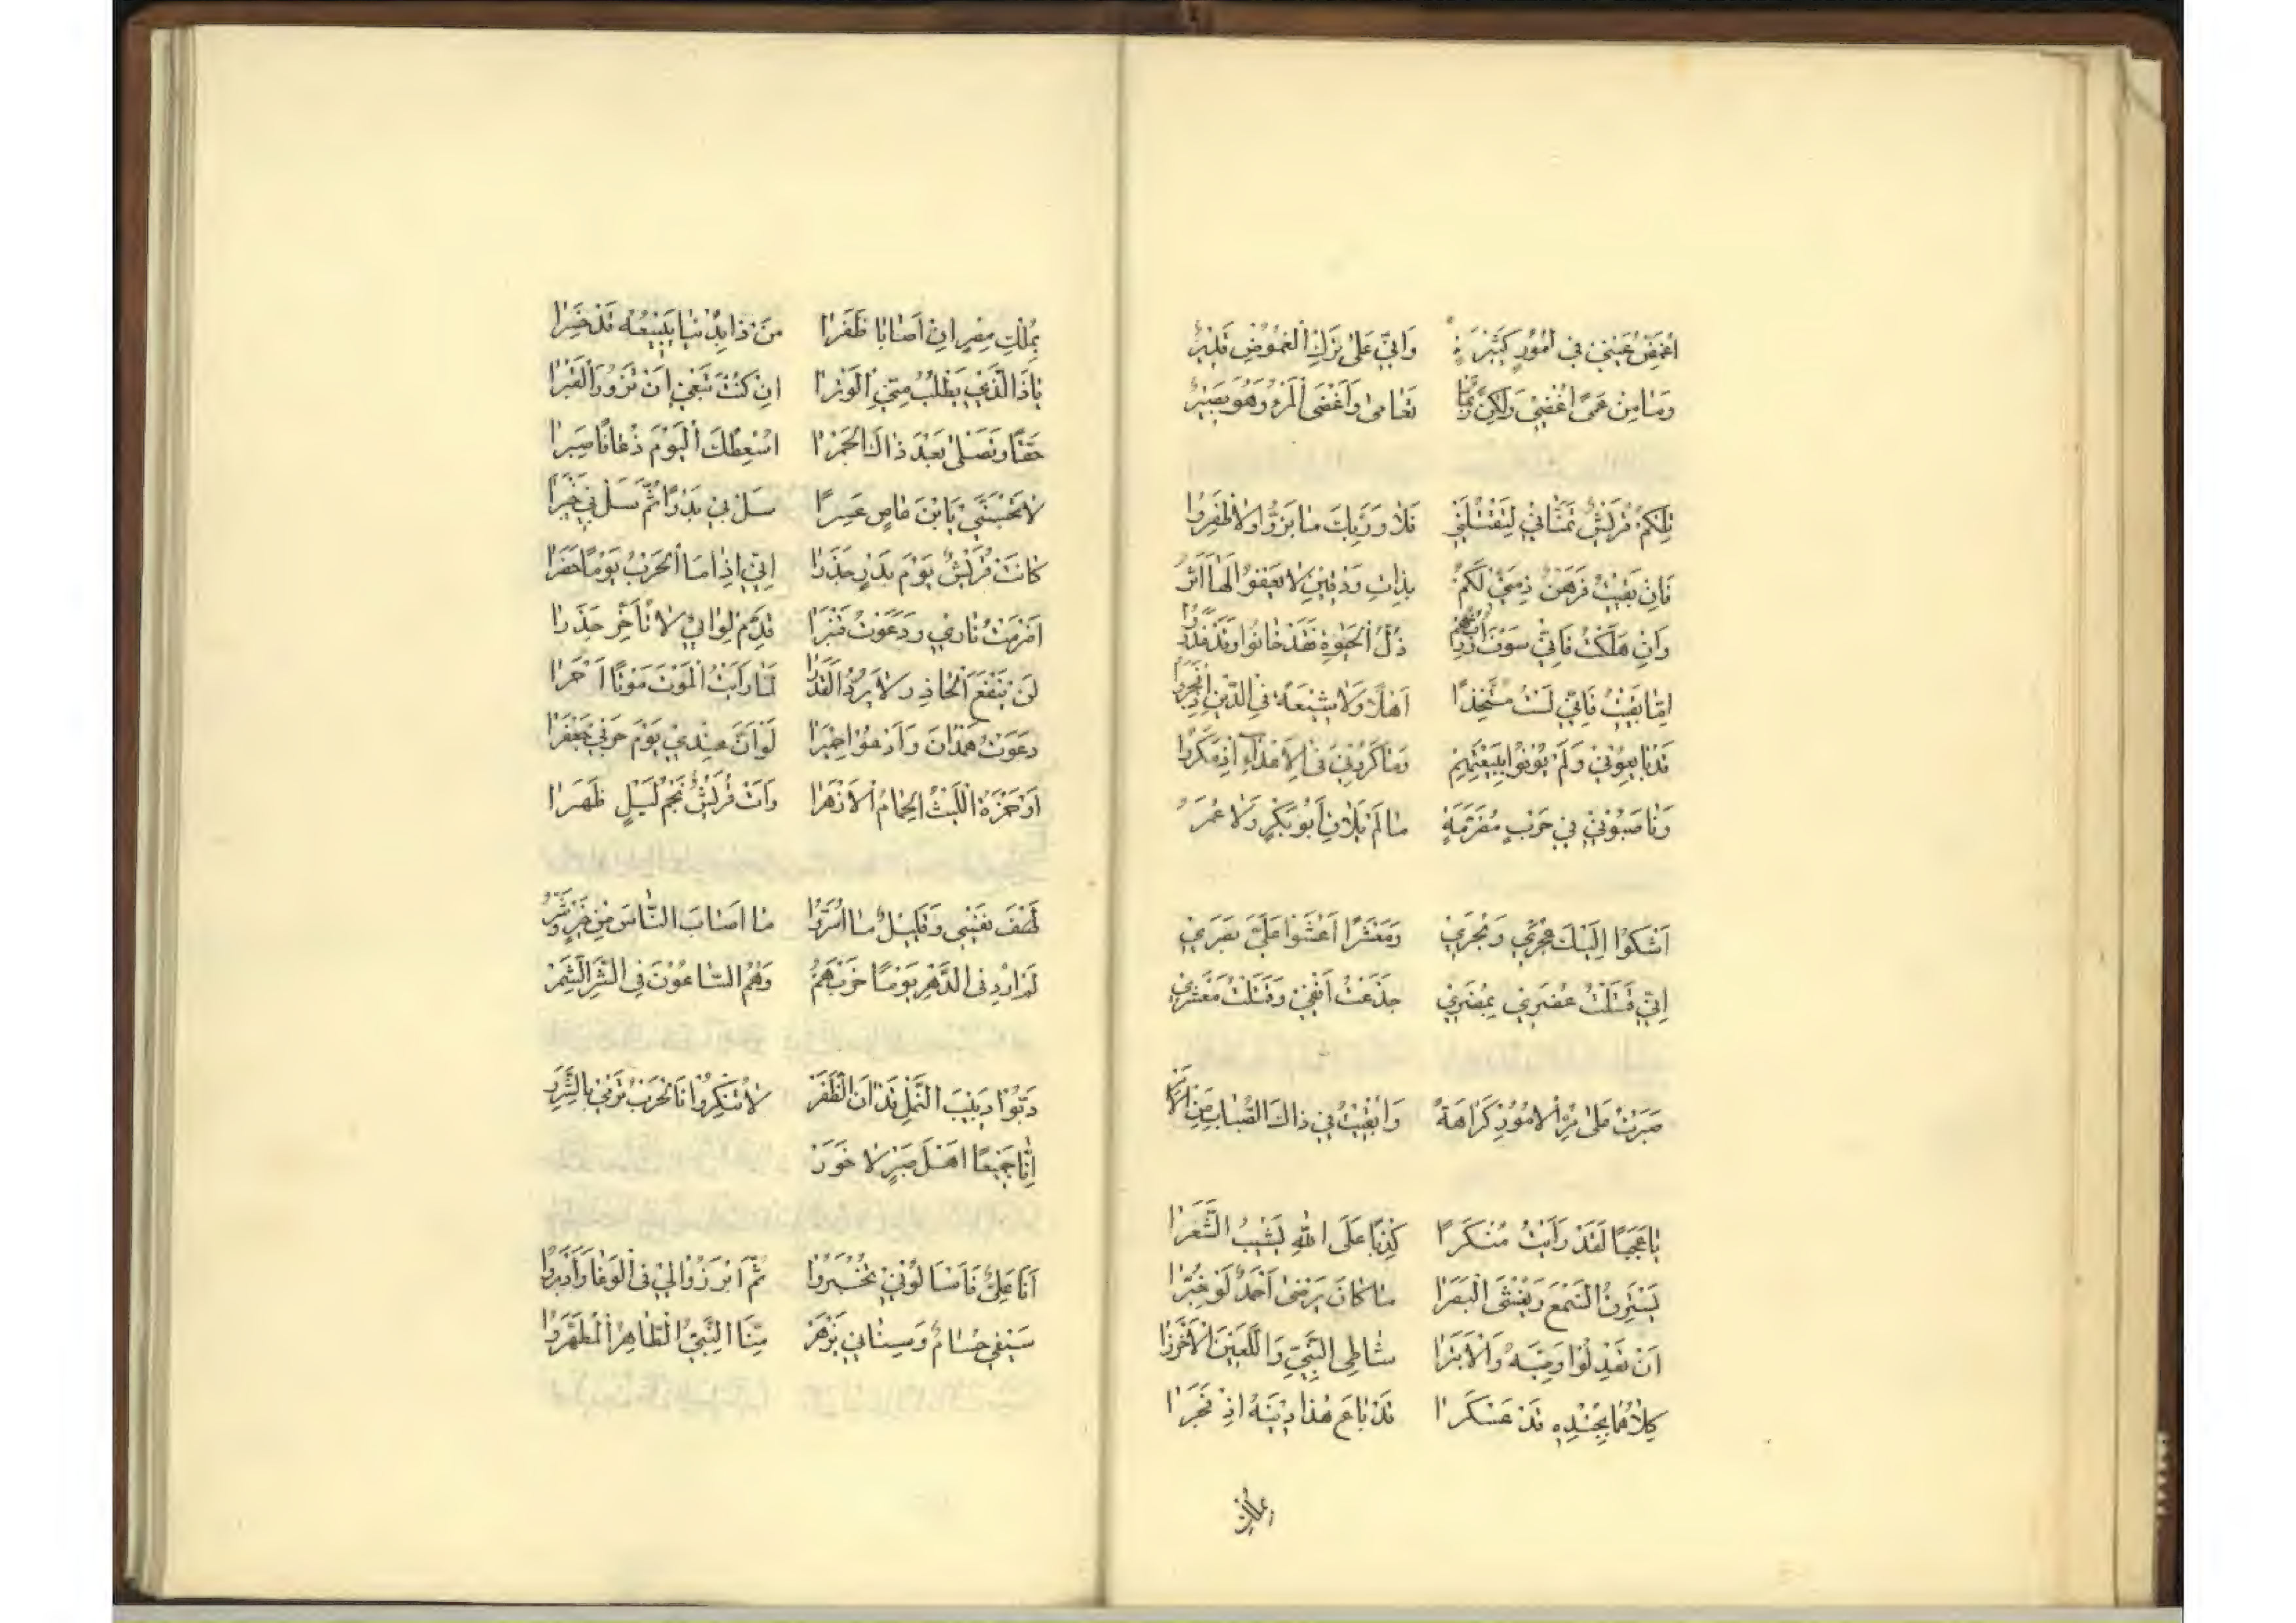 اُغَمِّضُ عَيْنِي فِي اُمُوْرٍ كَثِيْرَةٍ وَاِنِّي عَلٰى تَرْكِ الْغُمُوْضِ قَدِيْرُ
وَمَا مِنْ عَمًى اُغْضِيْ وَلٰكِنْ رُبَّمَا تَعَامٰى وَاَغْضَى الْمَرْءُ وَهُوَ بَصِيْرُ
تِلْكُمْ قُرَيْشٌ تَمَنَّانِيْ لِتَقْتُلَنِيْ فَلَا وَرَبِّكَ مَا بَزُّوْا وَلَا ظَفِرُوْا
فَاِنْ بَقِيْتُ فَرَهْنٌ ذِمَّتِيْ لَكُمْ بِذَاتِ وَدْقَيْنِ لَا يَعْفُوْ لَهَا اَثَرُ
وَاِنْ هَلَكْتُ فَاِنِّيْ سَوْفَ اُوْرِثُهُمْ ذُلَّ الْحَيٰوةِ فَقَدْ خَانُوْا وَقَدْ غَدَرُوْا
اِمَّا بَقِيْتُ فَاِنِّيْ لَسْتُ مُتَّخِذًا اَهْلًا وَلَا شِيْعَةً فِي الدِّيْنِ اِذْ فَجَرُوْا
قَدْ بَايَعُوْنِيْ وَلَمْ يُوْفُوْا بِبَيْعَتِهِمْ وَمَاكَرُوْنِيَ فِي الْاَعْدَاءِ اِذْ مَكَرُوْا
وَنَاصَبُوْنِيْ فِيْ حَرْبٍ مُضَرَّمَةٍ مَا لَمْ يُلَاقِ اَبُوْ بَكْرٍ وَلَا عُمَرُ
اَشْكُوْا اِلَيْكَ عُجَرِيْ وَبُجَرِيْ وَمَعْشَرًا اَغْشَوْا عَلَيَّ بَصَرِيْ
اِنِّيْ قَتَلْتُ مُضَرِيْ بِمُضَرِيْ جَذَعْتُ اَنْفِيْ وَقَتَلْتُ مَعْشَرِيْ
صَبَرْتُ عَلٰى مُرِّ الْاُمُوْرِ كَرَاهَةً وَاَبْقَيْتُ فِيْ ذَاكَ الصُّبَابَ مِنَ الْاَمْرِ
يَا عَجَبًا لَقَدْ رَاَيْتُ مُنْكَرًا كِذْبًا عَلَى اللّٰهِ يُشِيْبُ الشَّعَرَا
يَسْتَرِقُ السَّمْعَ وَيُغْشِي الْبَصَرَا مَا كَانَ يَرْضٰى اَحْمَدٌ لَوْ خُبِّرَا
اَنْ تَعْدِلُوْا وَصِيَّهُ وَالْاَبْتَرَا شَاطِي النَّبِيِّ وَاللَّعِيْنَ الْاَخْزَرَا
كِلَاهُمَا بِجُنْدِهِ قَدْ عَسْكَرَا قَدْ بَاعَ هٰذَا دِيْنَهُ اِذْ فَجَرَا
بِمُلْكِ مِصْرٍ اِنْ اَصَابَا ظَفَرَا مَنْ ذَا بِدُنْيَا بَيْعُهُ قَدْ خَسِرَا
يَا ذَا الَّذِيْ يَطْلُبُ مِنِّيَ الْوِتْرَا اِنْ كُنْتَ تَبْغِيْ اَنْ تَزُوْرَ الْقَبْرَا
حَقًّا وَتَصْلٰى بَعْدَ ذَاكَ الْجَمْرَا اُسْعِطُكَ الْيَوْمَ ذُعَافًا صَبِرَا
لَا تَحْسَبَنِّيْ يَا ابْنَ عَاصٍ عَسِرًا سَلْ بِيْ بَدْرًا ثُمَّ سَلْ بِيْ خَيْبَرَا
كَانَتْ قُرَيْشٌ يَوْمَ بَدْرٍ جَذَرَا اِنِّيْ اِذَا مَا الْحَرْبُ يَوْمًا حَضَرَا
اَضْرَمْتُ نَارِيْ وَدَعَوْتُ قَنْبَرَا قَدِّمْ لِوَائِيْ لَا تُاَخِّرْ حَذَرَا
لَنْ يَنْفَعَ الْحَاذِرَ لَا يَرُدُّ الْقَدَرَا لَمَّا رَاَيْتُ الْمَوْتَ مَوْتًا اَحْمَرَا
دَعَوْتُ هَمْدَانَ وَاَدْعُوْا حِمْيَرَا لَوْ اَنَّ عِنْدِيْ يَوْمَ حَرْبِيْ جَعْفَرَا
اَوْ حَمْزَةَ اللَّيْثَ الْهُمَامَ الْاَزْهَرَا رَاَتْ قُرَيْشٌ نَجْمَ لَيْلٍ ظَهَرَا
لَهْفَ نَفْسِيْ وَقَلِيْلٌ مَا اُمِرُّوْا مَا اَصَابَ النَّاسَ مِنْ خَيْرٍ وَشَرّْ
لَمْ اُرِدْ فِي الدَّهْرِ يَوْمًا حَرْبَهُمْ وَهُمُ السَّاعُوْنَ فِي الشَّرِّ الشَّمِرْ
دِبُّوْا دَبِيْبَ النَّمْلِ قَدْ اٰنَ الظَّفَرْ لَا تُنْكِرُوْا فَالْحَرْبُ تَرْمِيْ بِالشَّرَرْ
اِنَّا جَمِيْعًا اَهْلُ صَبْرٍ لَا خَوَرْ
اَنَا عَلِيٌّ فَاسْاَلُوْنِيْ تُخْبَرُوْا ثُمَّ ابْرُزُوْا لِيْ فِي الْوَغَا وَاَدْبِرُوْا
سَيْفِيْ حُسَامٌ وَسِنَانِيْ يَزْهَرُ مِنَّا النَّبِيُّ الطَّاهِرُ الْمُطَهَّرُ